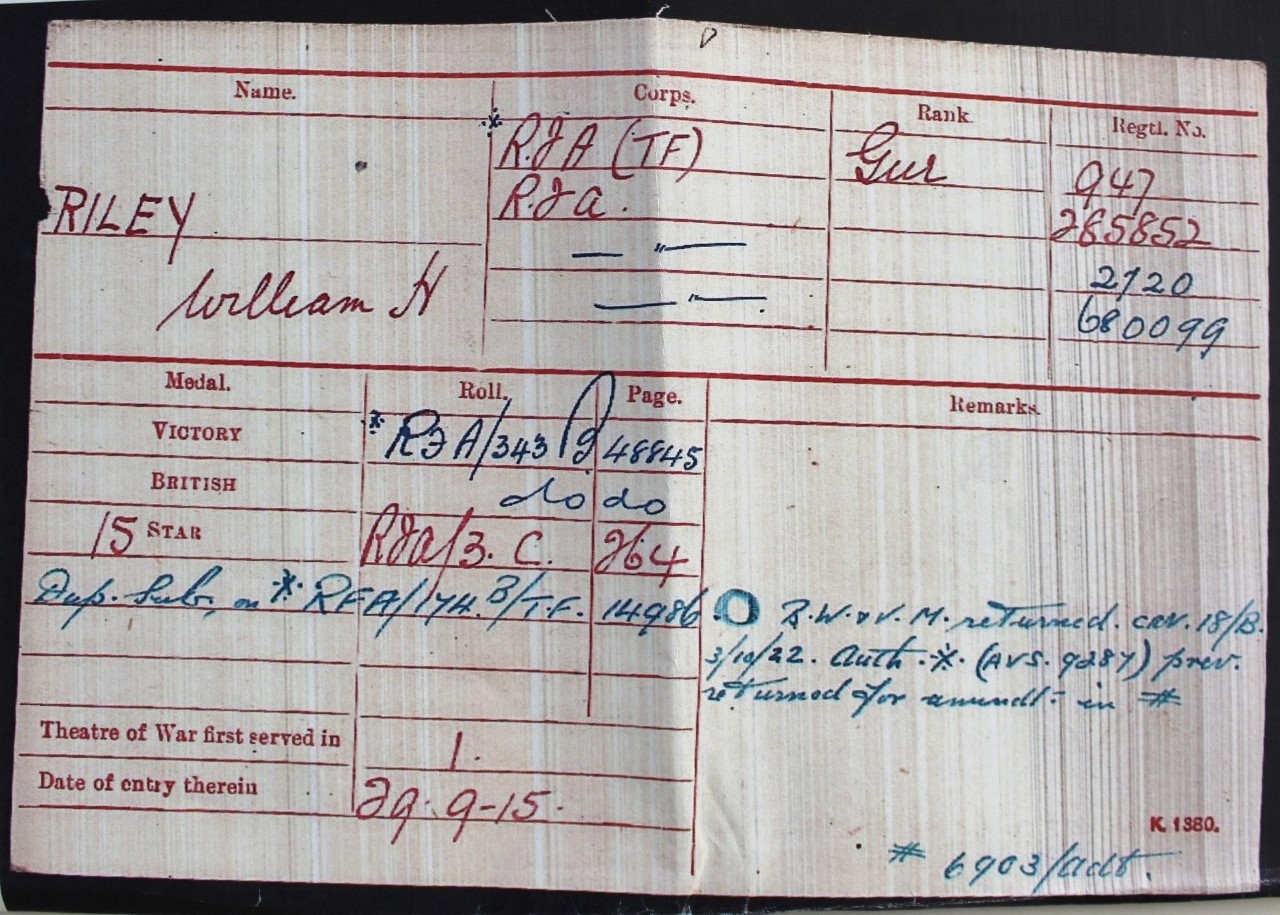 Name. Corps. Rank Regtl. No.
* R.F.A (TF) Gnr 947
RILEY R.F.a. 285852
— " — 2720
William H — " — 680099
Medal. Roll. Page. Remarks.
VICTORY * RFA/343 B 48845
BRITISH do do
15 STAR RFa/3. C. 264
Dup. Sub, on * RFA/174. B/T.F. 14986 B.W. & V. M. returned. cav. 18/B.
3/10/22. Auth. * (AVS. 9287) prev.
returned for amendt. in #
Theatre of War first served in 1.
Date of entry therein 29.9-15.
K. 1380.
# 6903/adt.